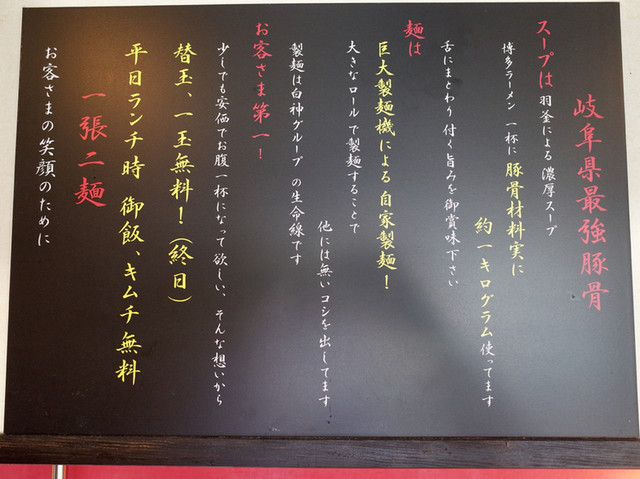 岐阜県最強豚骨
スープは 羽釜による 濃厚スープ
博多ラーメン 一杯に 豚骨材料実に
約一キログラム使ってます
舌にまとわり 付く旨みを御賞味下さい
麺は
巨大製麺機による 自家製麺！
大きなロールで製麺することで
他には無いコシを出してます
製麺は白神グループ の生命線です
お客さま第一！
少しでも安価でお腹一杯になって欲しい、そんな想いから
替玉、一玉無料！（終日）
平日ランチ時 御飯、キムチ無料
一張二麺
お客さまの笑顔のために